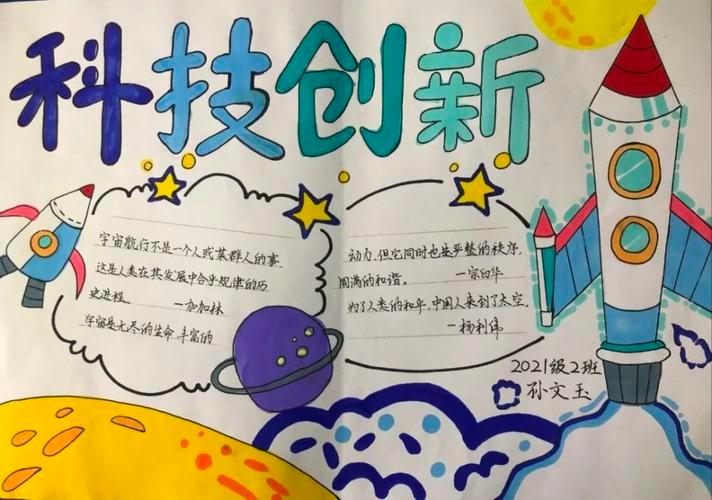 科技创新
宇宙航行不是一个人或某群人的事,
这是人类在其发展中合乎规律的历
史进程。 —加加林
宇宙是无尽的生命,丰富的
动力,但它同时也是严整的秩序,
圆满的和谐。 —宗白华
为了人类的和平,中国人来到了太空。
—杨利伟
2021级2班
孙文玉